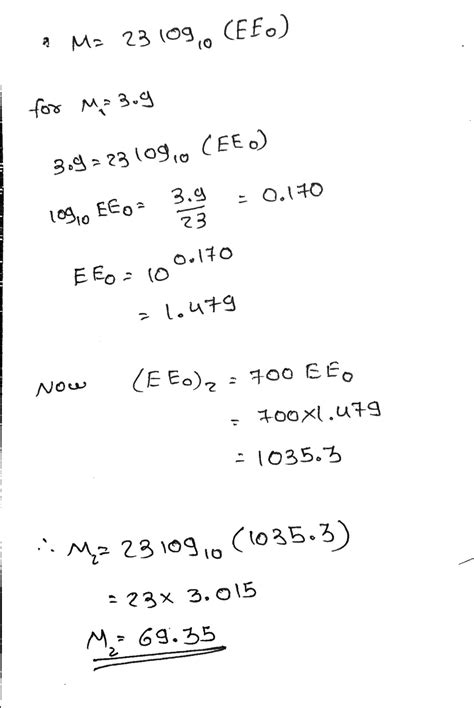 M = 23 log₁₀ (EE₀)
for M₁ = 3.9
3.9 = 23 log₁₀ (EE₀)
log₁₀ EE₀ = 3.9/23 = 0.170
EE₀ = 10^0.170
= 1.479
Now (EE₀)₂ = 700 EE₀
= 700×1.479
= 1035.3
∴ M₂ = 23 log₁₀ (1035.3)
= 23 × 3.015
M₂ = 69.35